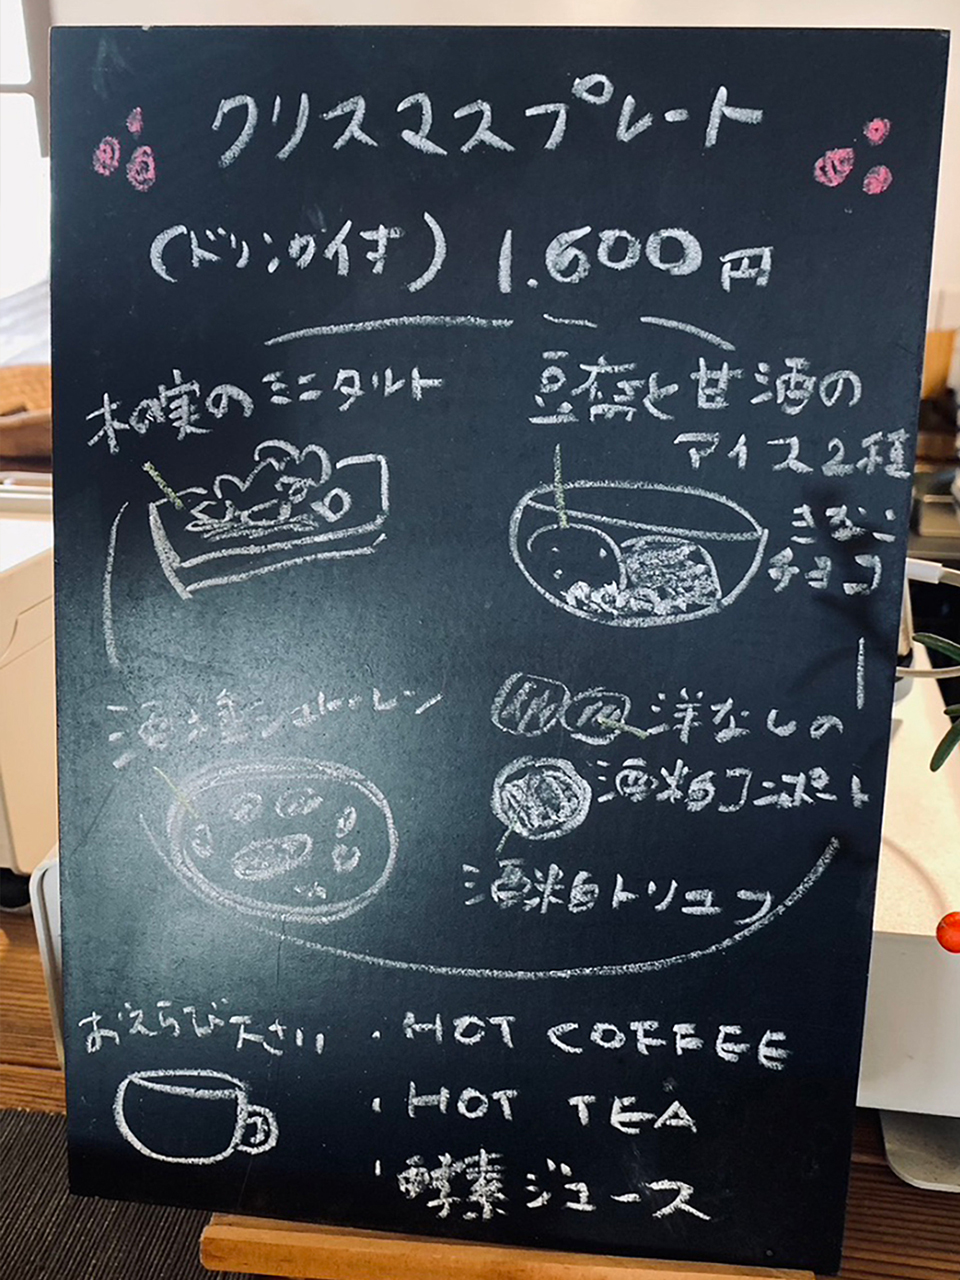 クリスマスプレート
(ドリンク付) 1.600円
木の実のミニタルト
豆腐と甘酒の
アイス2種
きなこ
チョコ
酒粕シュトーレン
洋なしの
酒粕コンポート
酒粕トリュフ
おえらび下さい
・HOT COFFEE
・HOT TEA
・酵素ジュース